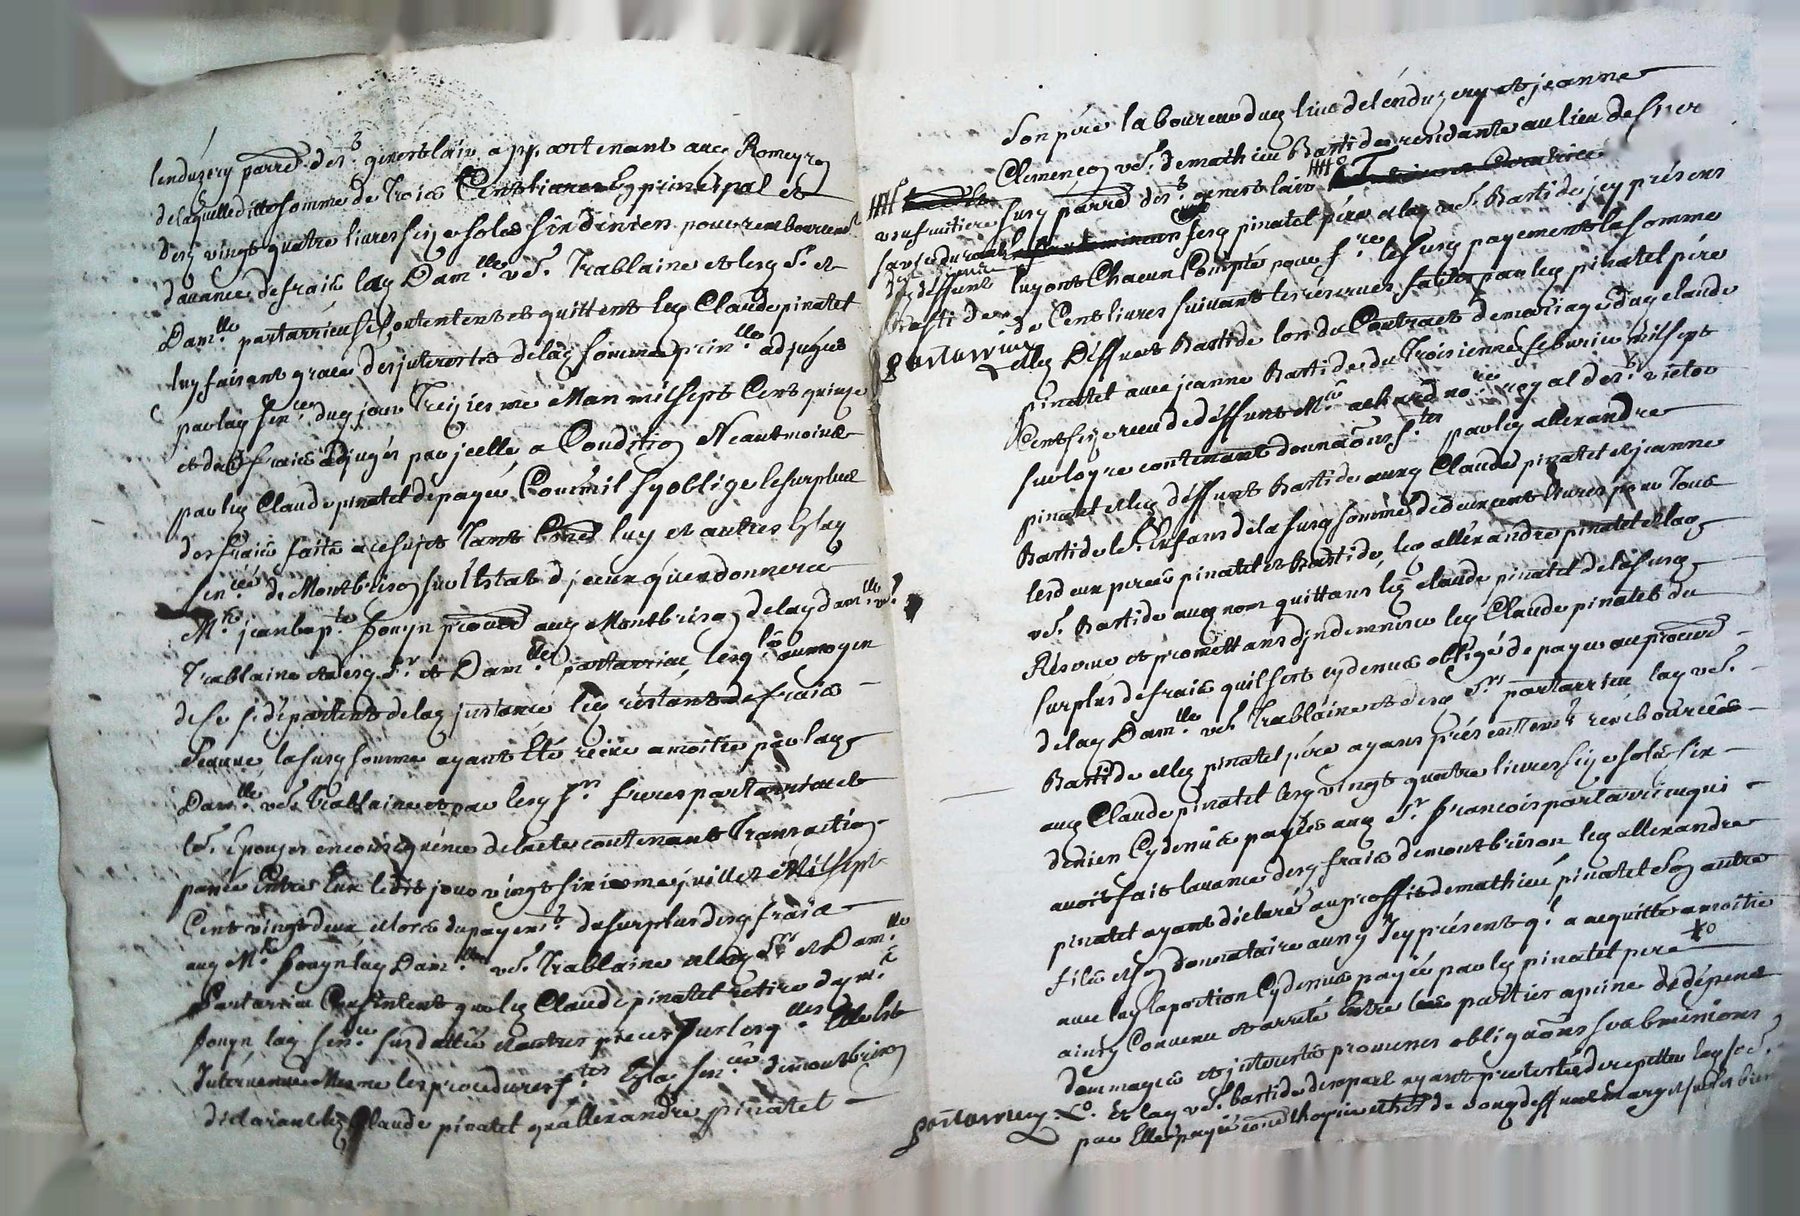 lenduzery parr.e de s.t genest lair appartenant auq Romeyron
de laquelle ditte somme de Trois Cent livres En principal et
desq vingt quatre livres seize solds six deniers pour remboursem.t
d'avances de frais laq Dam.lle v.e Trablaine et lesq s.r et
Dam.lle partarrieu se Contentent et quittent led Claude pinatet
luy faisant grace des jnterests de laq somme prin.lle adjugés
par laq sen.ce duq jour Treizieme Mars mil sept Cent quinze
et des frais adjugés par jcelle a Condition Neantmoins
par led Claude pinatet de payer Comme il s'y oblige le surplus
des frais faits a ce sujet Tant Contre luy et autres En laq
sen.cée de Montbrison sur l'Estat d'jceux qu'en donnera
M.re jean bap.te Souyn procur auq Montbrison de laq dam.lle v.e
Trablaine et desq s.r et Dam.lle partarrieu, lesq.ls au moyen
de ce se départent de laq jnstance led restant de frais
Comme la susq somme ayant Eté reçue a moitie par laq
Dam.lle v.e Trablaine et par lesq s.rs freres partarrieu et
les.t Epouses en consequence de l'acte contenant Transaction
passée Entre Eux ledit jour vingt sixieme juillet Mil sept
Cent vingt deux et lors du payem.t du surplus desq frais
auq M.re Souyn laq Dam.lle v.e Trablaine et lesq S.r et Dam.lle
Partarrieu Consentent que led Claude pinatet retire duq m.re
Souyn laq sen.ce susdattée et autres pieces sur lesq.lles Elle Est
Intervenue Mesme les procedures f.tes En la sen.cée de montbrison
déclarant led Claude pinatet qu'allexandre pinatet
son père laboureur duq lieu de lenduzery et jeanne
Clemençon v.e de mathieu Bastide residante au lieu de
usufruitiere susq parr.e de s.t genest lair
sa vie durant
des
biens
dud deffunt
Bastide
partarrieu
lesq pinatet père et laq v.e Bastide jcy présens
luy ont Chacun Compté pour f.re le susq payement la somme
de Cent livres suivant les réserves faites par led pinatet père
et led Deffunt Bastide lors du Contract de mariage duq claude
pinatet avec jeanne Bastide du Troisieme febvrier mil sept
Cent seize reçu de deffunt M.re achard no.re royal de s.t victor
sur loyre contenant donnaõns f.tes par led allexandre
pinatet et led deffunt Bastide auxq Claude pinatet et jeanne
Bastide le.s Enfans de la susq somme de deux cent livres pour Tous
les deux peres pinatet et Bastide, led allexandre pinatet et laq
v.e Bastide auq nom quittans led claude pinatet de la susq
Réserve et promettans d'jndemniser led Claude pinatet du
surplus de frais qu'il s'est cy dessus obligé de payer au procur
de laq Dam.lle v.e Trablaine et desq s.rs partarrieu laq v.e
Bastide et led pinatet père ayans présentem.t rembourcés
auq Claude pinatet lesq vingt quatre livres seize sols six
deniers Cy dessus payés auq s.r françois partarrieu qui
avoit fait l'avance desq frais de montbrison led allexandre
pinatet ayant déclaré au proffit de mathieu pinatet son autre
fils et son donnataire auny jcy présent q.l a acquitté a moitie
avec luy la portion Cy dessus payée par led pinatet pere X.o
ainsy Convenu et arreté Entre les parties a peine de dépens
dommages et jnterests promesses obligaõns submissions
X.o Et laq v.e bastide de sa part ayant protesté de repetter laq so.e
par Elle payée contre
partarrieu